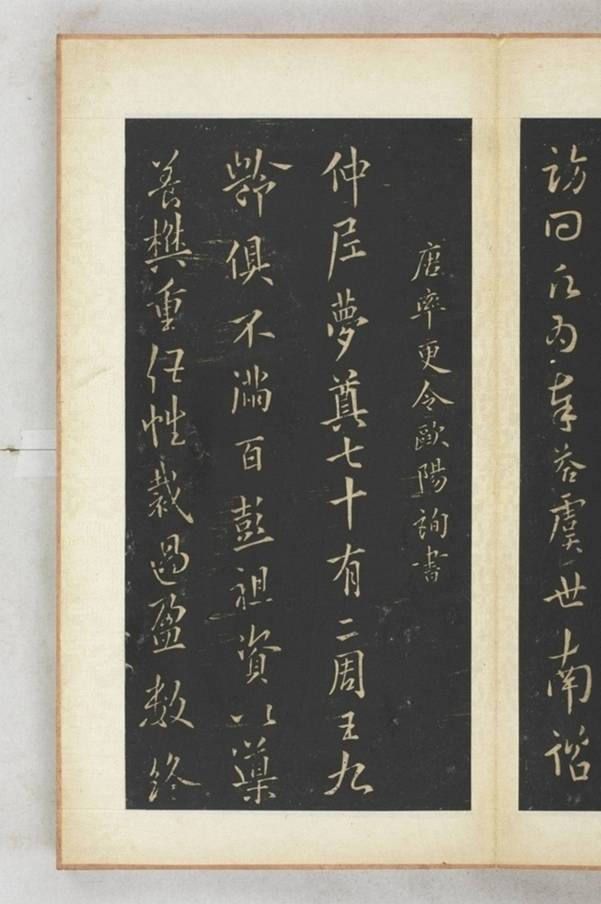 訪問願為奉答虞世南諮
唐率更令歐陽詢書
仲尼夢奠七十有二周王九
齡俱不滿百彭祖資以導
養樊重任性裁過盈數終